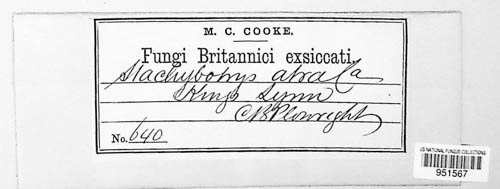 M. C. COOKE.
Fungi Britannici exsiccati.
Stachybotrys atra Ca
Kings Lynn
C B Plowright
No. 640
US NATIONAL FUNGUS COLLECTIONS
951567